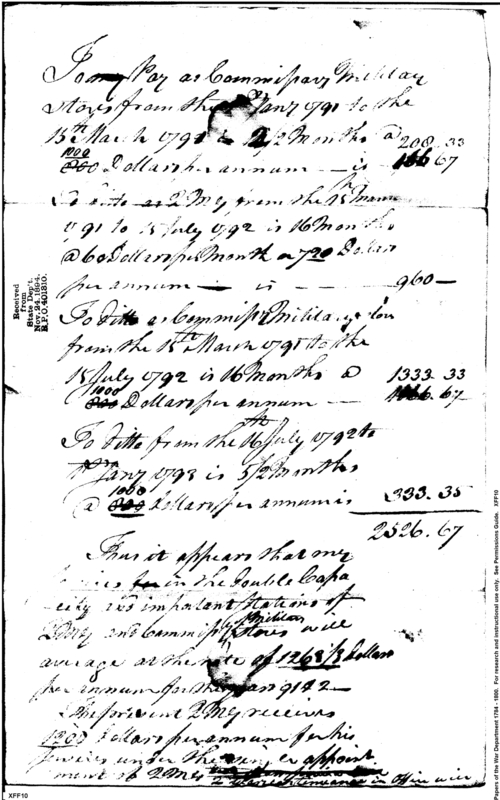 To my Pay as Commissary Military
Stores from the 1st Jany 1791 to the
15th March 1791 is 2 1/2 Months @ 208.33
1000
800 Dollars per annum — is — 166.67
To ditto as 2 Mr from the 15 March
1791 to 15 July 1792 is 16 Months
@ 60 Dollars per Month or 720 Dollars
per annum — is — 960 —
To Ditto as Commissy Military Stores
from the 15th March 1791 to the
15 July 1792 is 16 Months @ 1333.33
1000
800 Dollars per annum — 1066.67
To ditto from the 16th July 1792 to
1st Jany 1793 is 5 1/2 Months
1000
@ 800 dollars per annum is 333.35
2526.67
Thus it appears that my
in the Double Capa
city and important Stations of
2 Mr and Commissy Military Stores will
average at the rate of 1263 1/3 Dollars
per annum for the years 91 & 2 —
The present 2 Mr receives
1200 Dollars per annum for his
services under the appoint
ment of 2 Mr in Office will
Received
from
State Dep't.
Nov. 24, 1894.
R.P.O. 401310.
XFF10
Papers of the War Department 1784 - 1800. For research and instructional use only. See Permissions Guide. XFF10